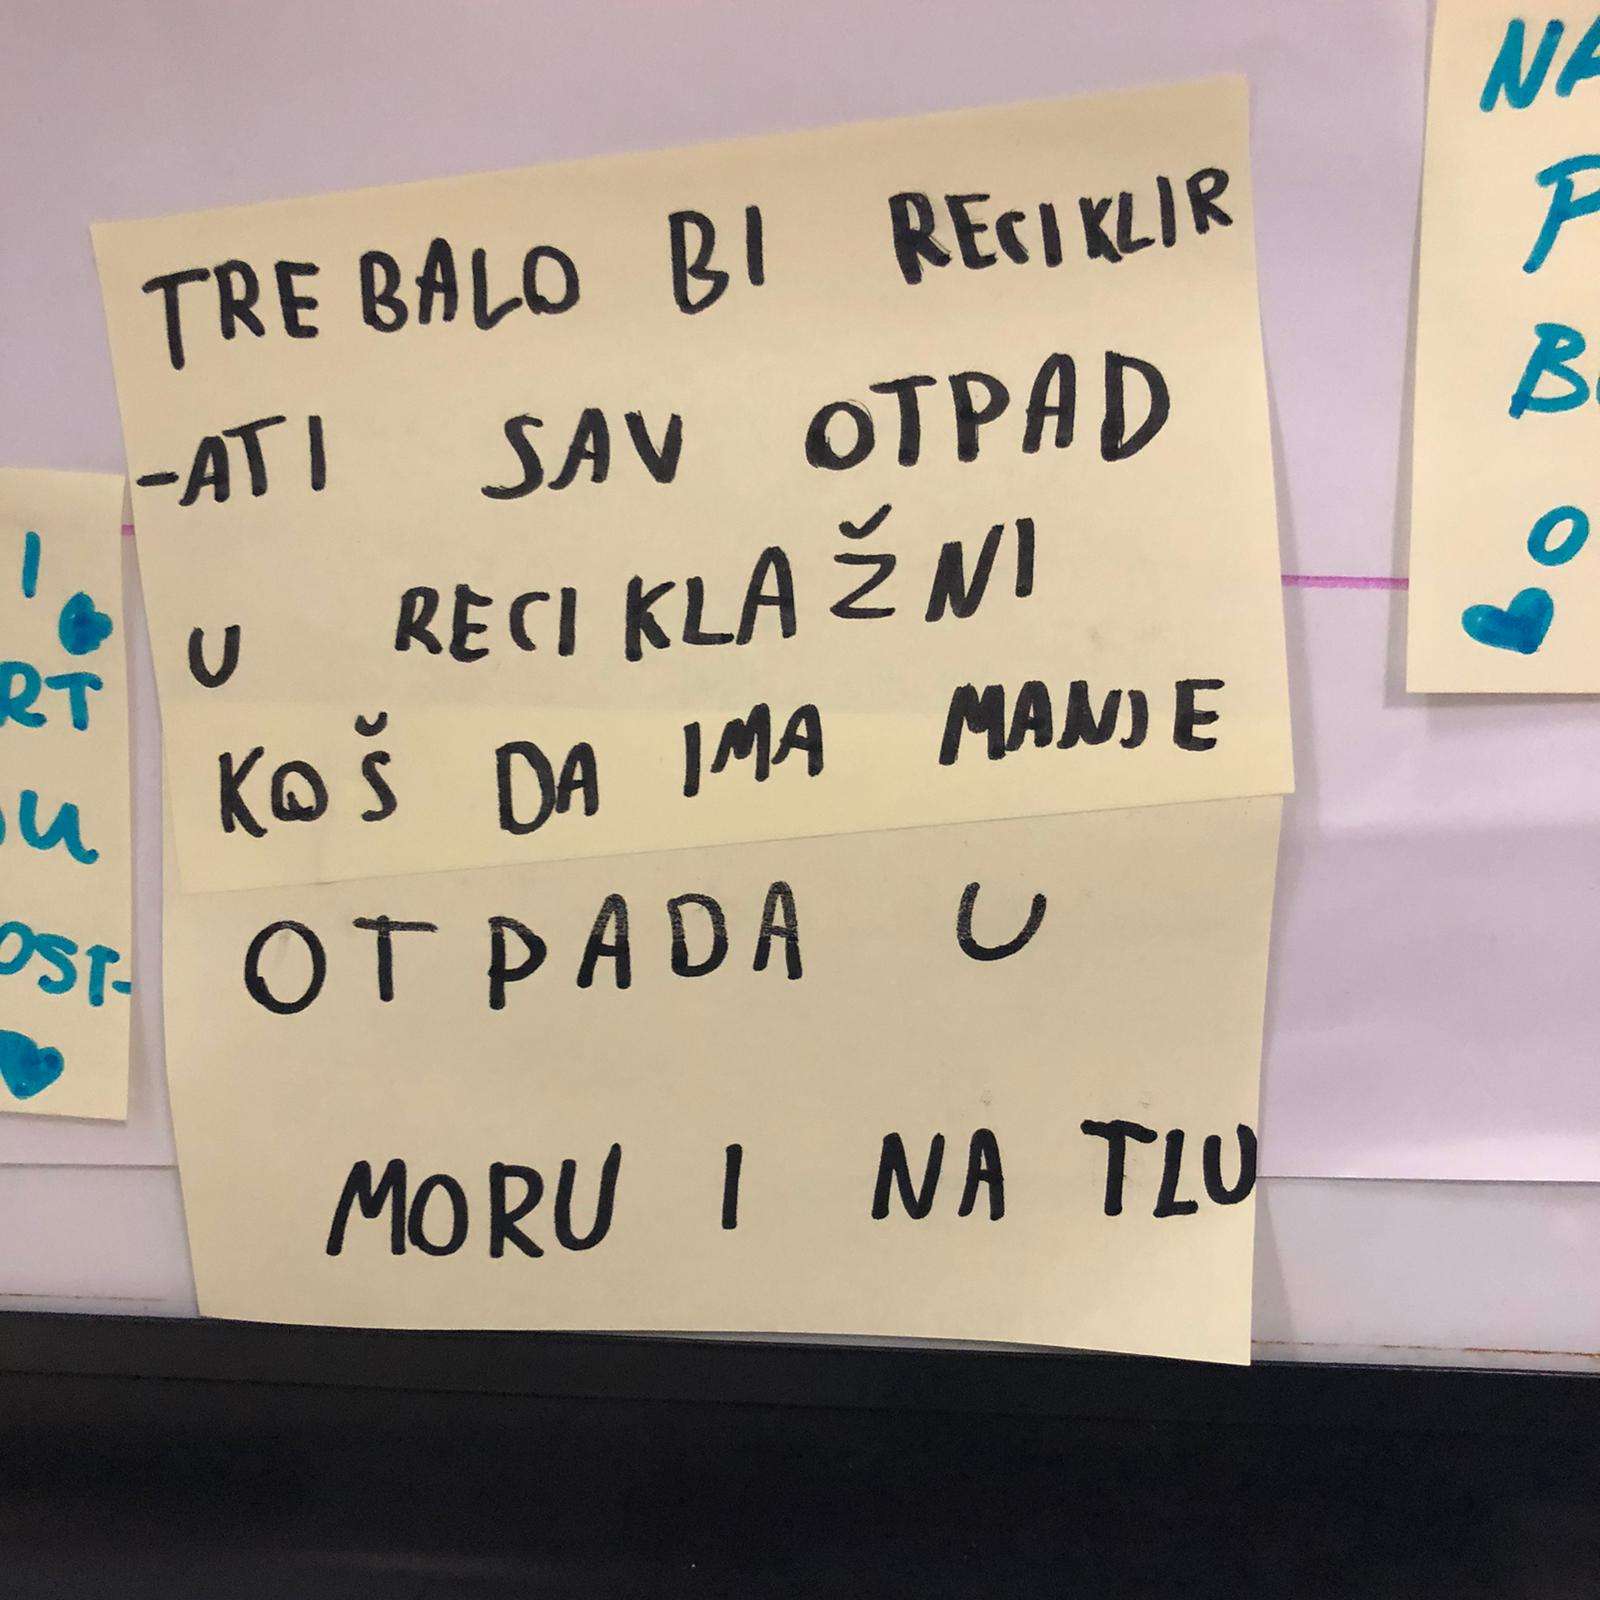 TREBALO BI RECIKLIR
-ATI SAV OTPAD
U RECIKLAŽNI
KOŠ DA IMA MANJE
OTPADA U
MORU I NA TLU
I